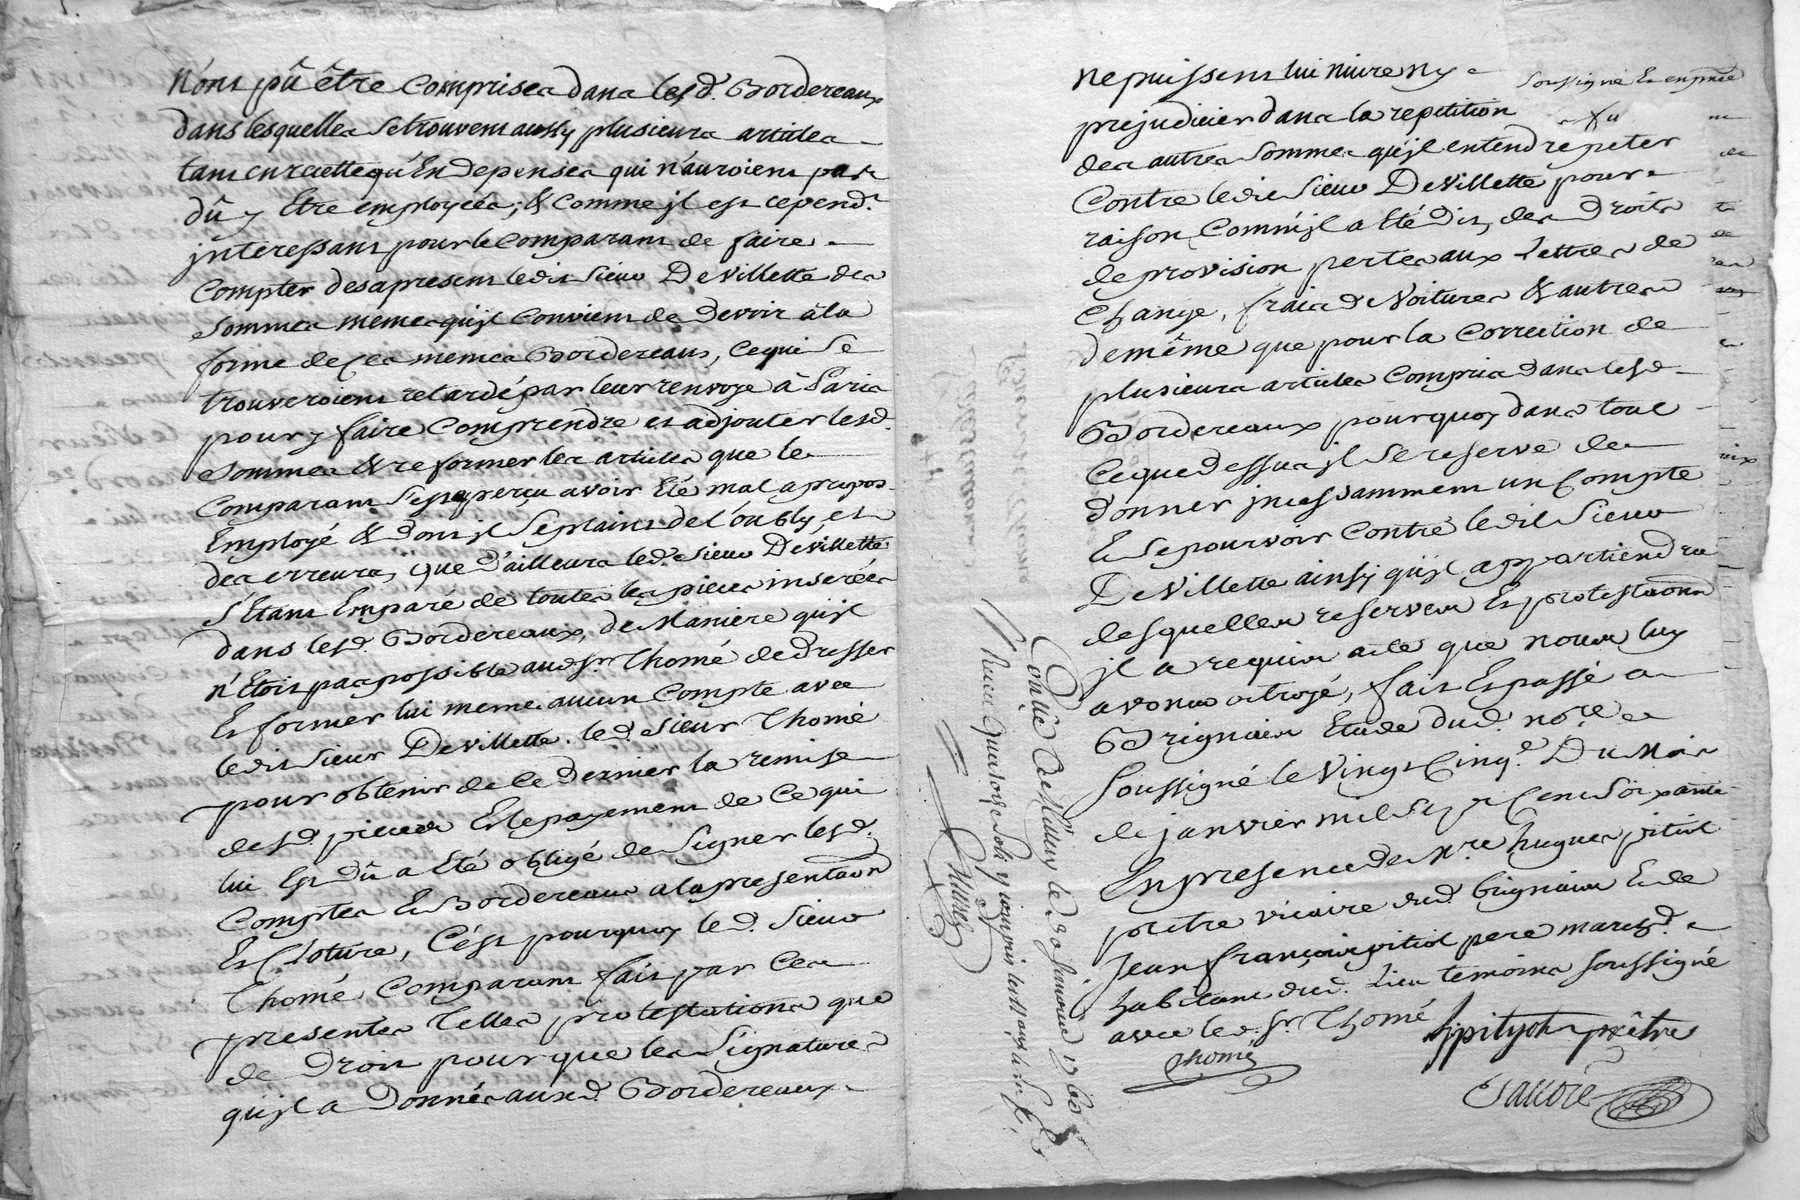 n'ont pû être Comprises dans lesd. Bordereaux
dans lesquelles se trouvent aussy plusieurs articles
tant en recette qu'En depenses qui n'auroient pas
dû y Etre employées; & comme jl est cepend.t
jnteressant pour le Comparant de faire
Compter des apresent ledit Sieur De Villette des
Sommes memes qu'jl Convient de devoir à la
forme de ces memes Bordereaux, ce qui se
trouveroient retardé par leur renvoye à Paris
pour y faire Comprendre et adjouter lesd.
Sommes & reformer les articles que le
Comparant s'est aperçu avoir Eté mal a propos
Employé & dont jl se plaint de l'oubly, et
des erreurs, que d'ailleurs led. Sieur De Villette
s'Etant Emparé de toutes les pieces inserées
dans lesd. Bordereaux, de Maniere qu'jl
n'Etoit pas possible aud. Sr Thomé de dresser
Et former lui meme aucun Compte avec
ledit Sieur De Villette. led. Sieur Thomé
pour obtenir de ce Dernier la remise
desd. pieces Et le payement de Ce qui
lui Est dû a Eté obligé de Signer lesd.
Comptes Et Bordereaux a la presentaon
Et Cloture, C'est pourquoy led. Sieur
Thomé Comparant fait par Ces
presentes telles protestations que
de Droit pour que les Signatures
qu'jl a Données auxd. Bordereaux
ne puissent lui nuire ny
prejudicier dans la repetition
des autres Sommes qu'jl entend repeter
Contre ledit Sieur De Villette pour
raison, Comm'jl a Eté dit, des Droits
de provision pertes aux Lettres de
Change, fraix de Voitures & autres
de même que pour la Correction de
plusieurs articles Compris dans lesd.
Bordereaux pourquoy dans tout
Ce que dessus jl se reserve de
donner jncessamment un Compte
Et se pourvoir Contre ledit Sieur
De Villette ainsy qu'jl appartiendra
desquelles reserves Et protestaons
jl a requis acte que nous luy
avons octroyé, fait Et passé a
Brignais Etude dud. no.re
Soussigné le Vingt Cinq.e Du Mois
de janvier mil sept Cent Soixante
En presence de M.re hugues pitiot
prêtre vicaire dud. brignais Et de
Jean françois pitiot pere march.d
habitant dud. Lieu temoins soussigné
avec le d. Sr Thomé
Thomé
hpityot prêtre
Soussigné
Conllé A Millery le 30 janvier 1760
Reçu Quatorze sols